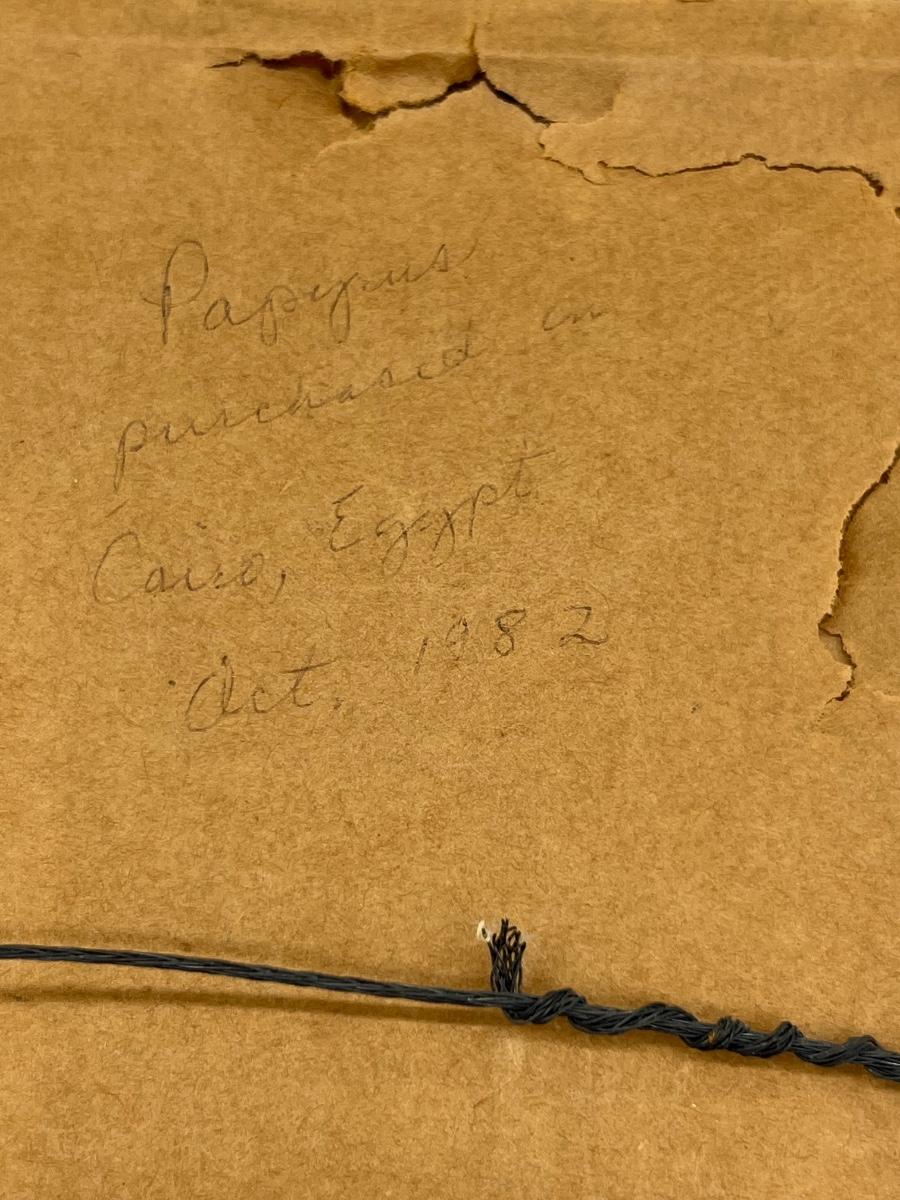 Papyrus
purchased in
Cairo, Egypt
Oct. 1982